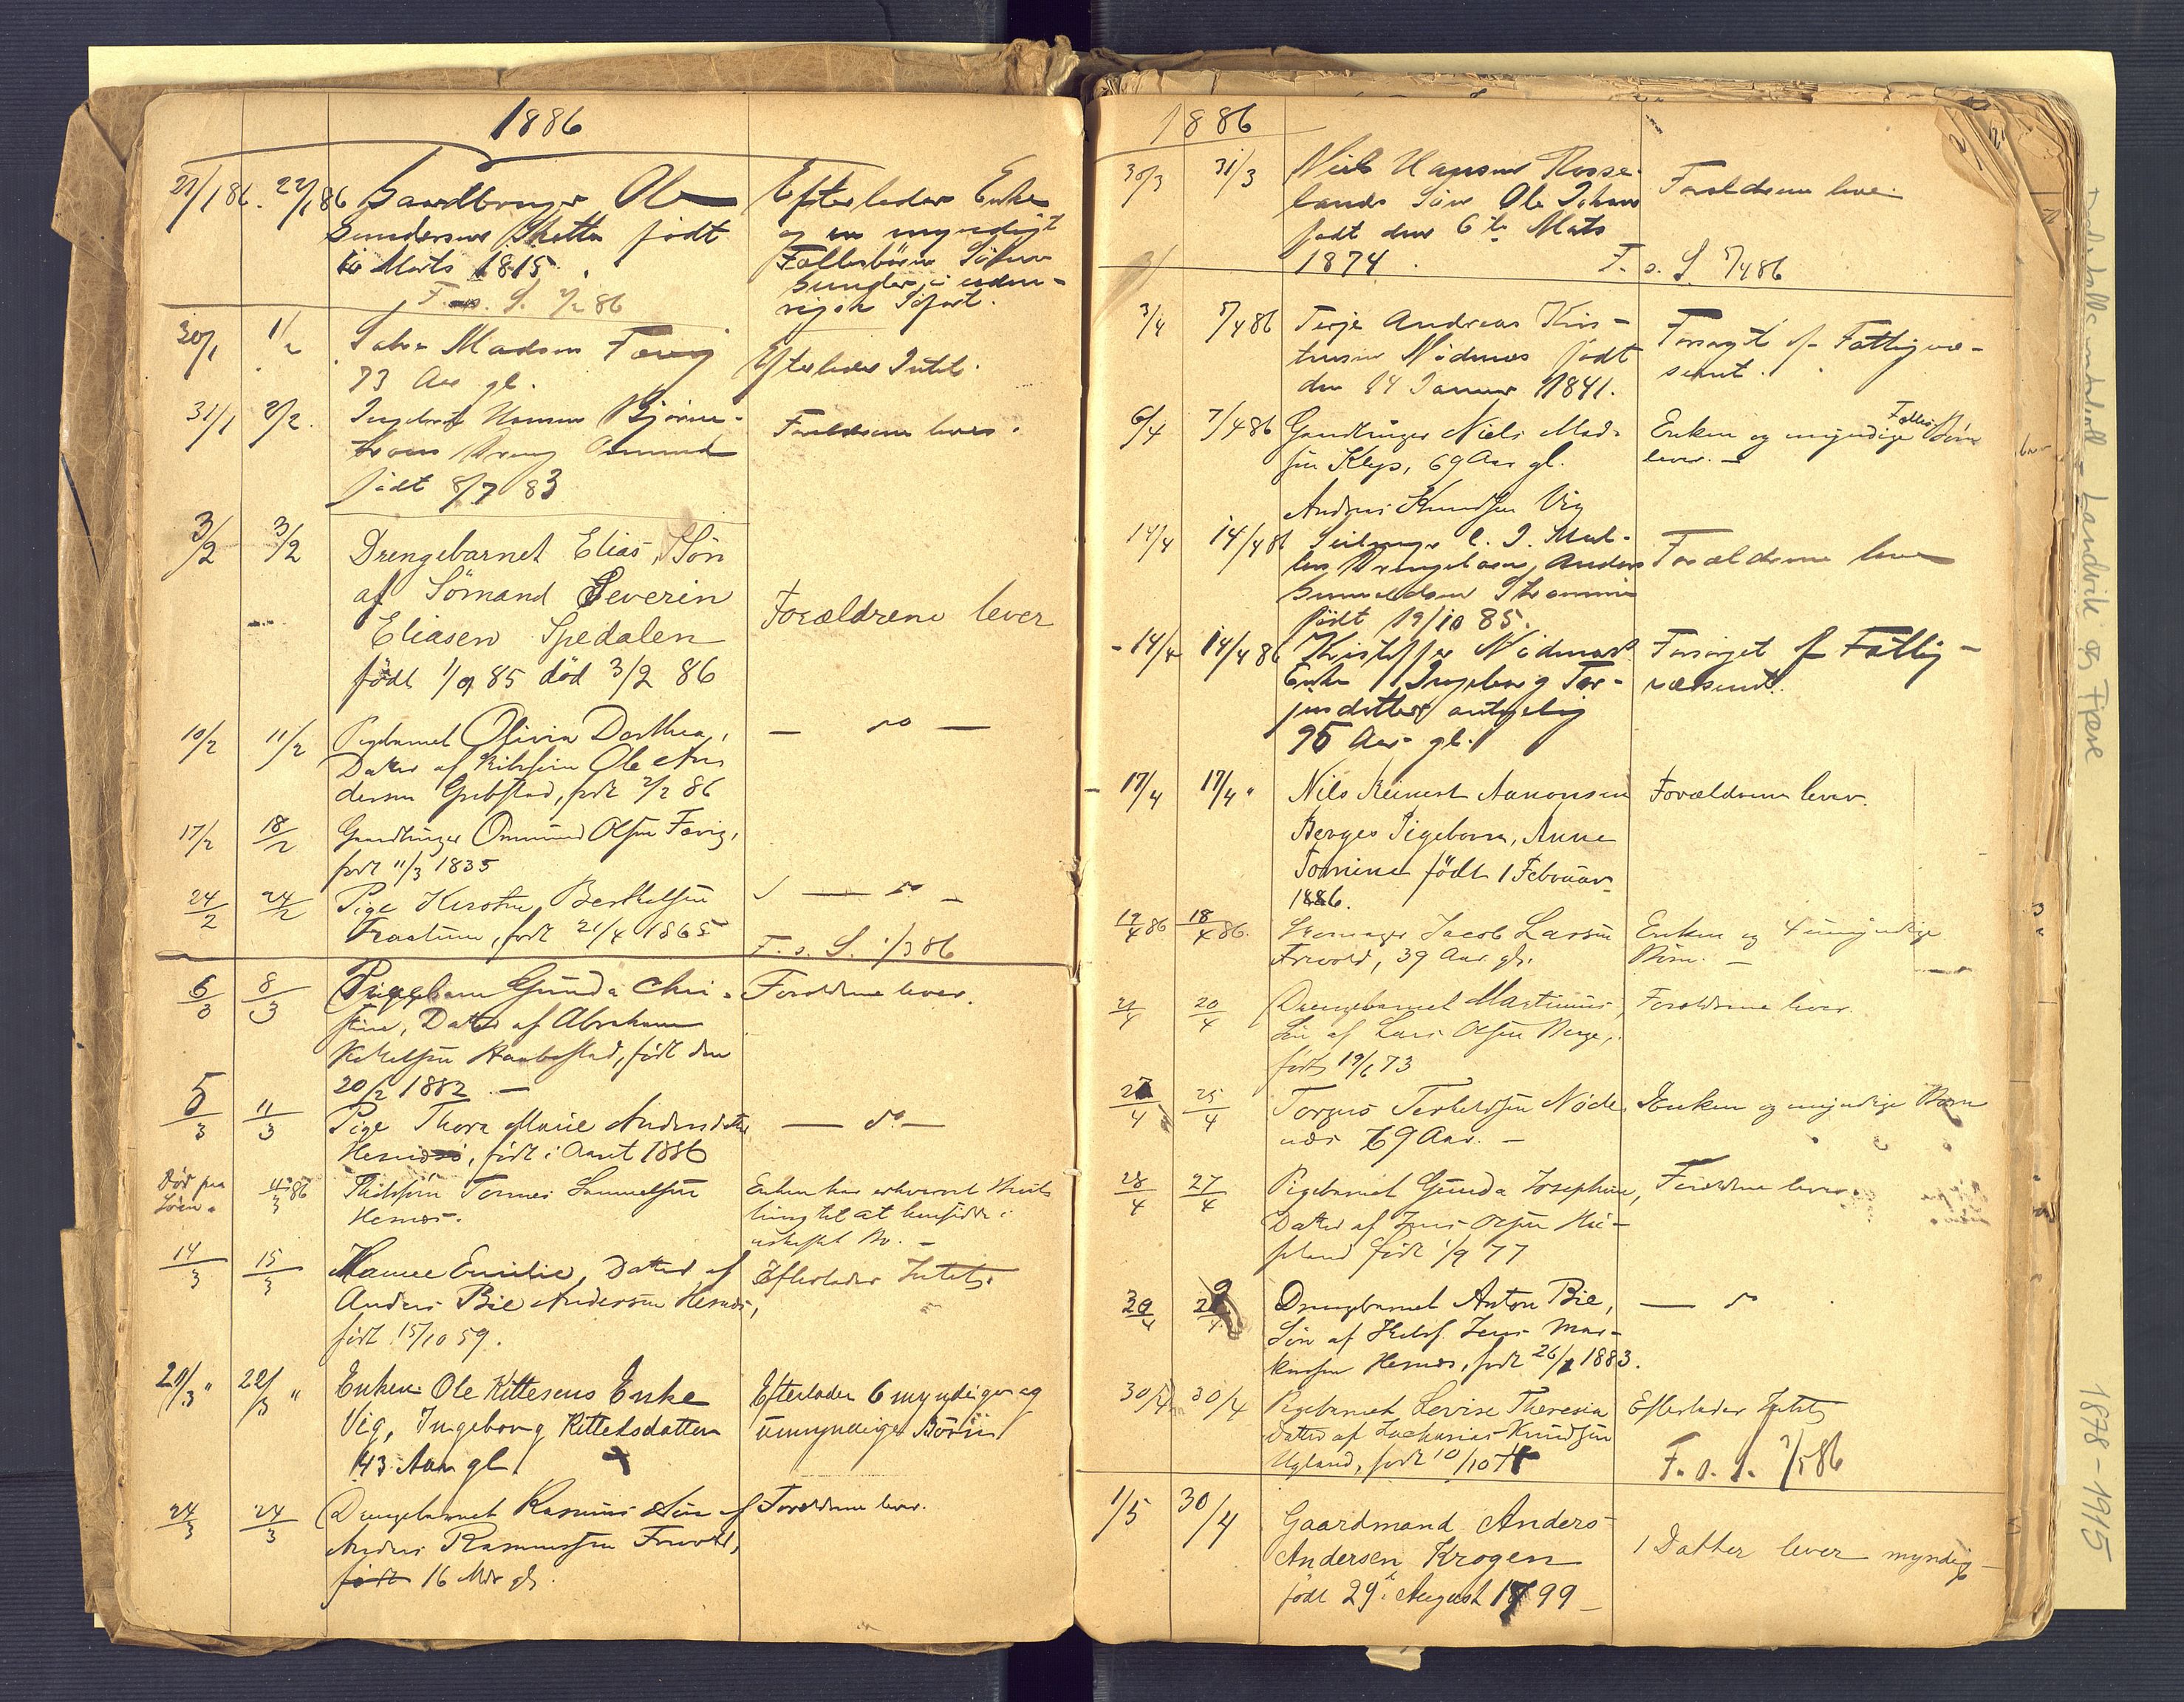 1886
21/1 86. 22/1 86 Gaardbruger Ole
Gundersen Skotta født
Marts 1815.
F. s. S. 2/2 86
Efterlader Enke
og en myndigt
Fællesbørn Sønn
Gunder, i uden-
rigsk Sjøfart.
30/1 1/2 Madsen Fævig
73 Aar gl.
Efterlader Intet.
31/1 2/2. Ingebret Hansen Bjørne-
Dreng Omund
født 8/7 83
Forældrene lever.
3/2 3/2 Drengebarnet Elias, Søn
af Sömand Severin
Eliasen Spedalen
födt 1/9 85 död 3/2 86
Forældrene lever
10/2 11/2 Pigebarnet Olivia Dorthea,
Datter af Ole An
dersen Grebstad, født 2/2 86
— do —
17/2 18/2 Gaardbruger Ommund Olsen Fævig,
født 11/3 1835
24/2 24/2 Pige Kirstine Berthelsen
født 21/4 1865
— do —
F. s. S. 1/3 86
6/3 8/3 Pigebarn Gunda Chri-
stine, Datter af Abraham
Kittelsen Haabestad, født den
20/2 1882. —
Forældrene lever.
5/3 11/3 Pige Thora Marie Andersdatter
Hesnæs, født i Aaret 1886
— do —
Død paa
Søen. 11/3 86 Tønnes Samuelsen
Hesnæs.
Enken har erhvervet Bevil-
ling til at hensidde i
uskiftet Bo. —
14/3 15/3 Hanne Emilie, Datter af
Anders Bie Andersen Hesnæs,
født 15/10 59.
Efterlader Intet.
21/3 " 22/3 " Enken Ole Kittesens Enke
Vig, Ingeborg Kittelsdatter
43 Aar gl.
Efterlader 6 myndiger og
umyndiger Börn
24/3 24/3 Drengebarnet Rasmus Søn af
Anders Rasmussen Frivold,
født 16 Mdr gl.
Forældrene lever.
1886
30/3 31/3 Niels Hansen Rosse-
lands Søn Ole Johan
født den 6te Marts
1874.
Forældrene leve.
F. s. S. 5/4 86
3/4 5/4 86 Terje Andreas Kris-
tensen Nødenes født
den 14 Januar 1841.
Forsørget af Fattigvæ-
senet.
6/4 7/4 86 Gaardbruger Niels Mad-
sen Klep, 69 Aar gl.
Enken og myndige Fælles Børn
lever. —
Anders Knudsen Vig
14/4 14/4 86
Drengebarn, Anders
Gunvaldsen Strømmen
født 19/10 85.
Forældrene leve
14/4 14/4 86 Kristoffer Nødenæs
Enke Ingeborg Ter-
jesdatter antagelig
95 Aar gl.
Forsørget af Fattig-
væsenet.
17/4 17/4 " Nils Reinert Aanonsen
Berges Pigebarn, Anne
Tomine født 1 Februar
1886.
Forældrene lever.
17/4 86 18/4 86. Jacob Larsen
Frivold, 39 Aar gl.
Enken og 4 umyndige
Børn. —
21/4 20/4 Drengebarnet Martinius,
Søn af Lars Olsen Berge,
født 19/6 73
Forældrene lever.
25/4 Torgus Terkelsen Nøde-
næs 69 Aar. —
Enken og myndige Børn
28/4 27/4 Pigebarnet Gunda Josephine,
Datter af Jens Olsen
født 1/9 77
Forældrene lever.
29/4 Drengebarnet Anton Bie,
Søn af Jens Mar-
kussen Hesnæs, født 26/2 1883.
— do
30/4 30/4 Pigebarnet Levise Theresia
Datter af Zacharias Knudsen
Ugland, født 10/10
Efterlader Intet
F. s. S. 3/5 86
1/5 30/4 Gaardmand Anders
Andersen Krogen
född 29. August 1799 —
1 Datter lever myndig —
Landvik og Fjære
1878-1915